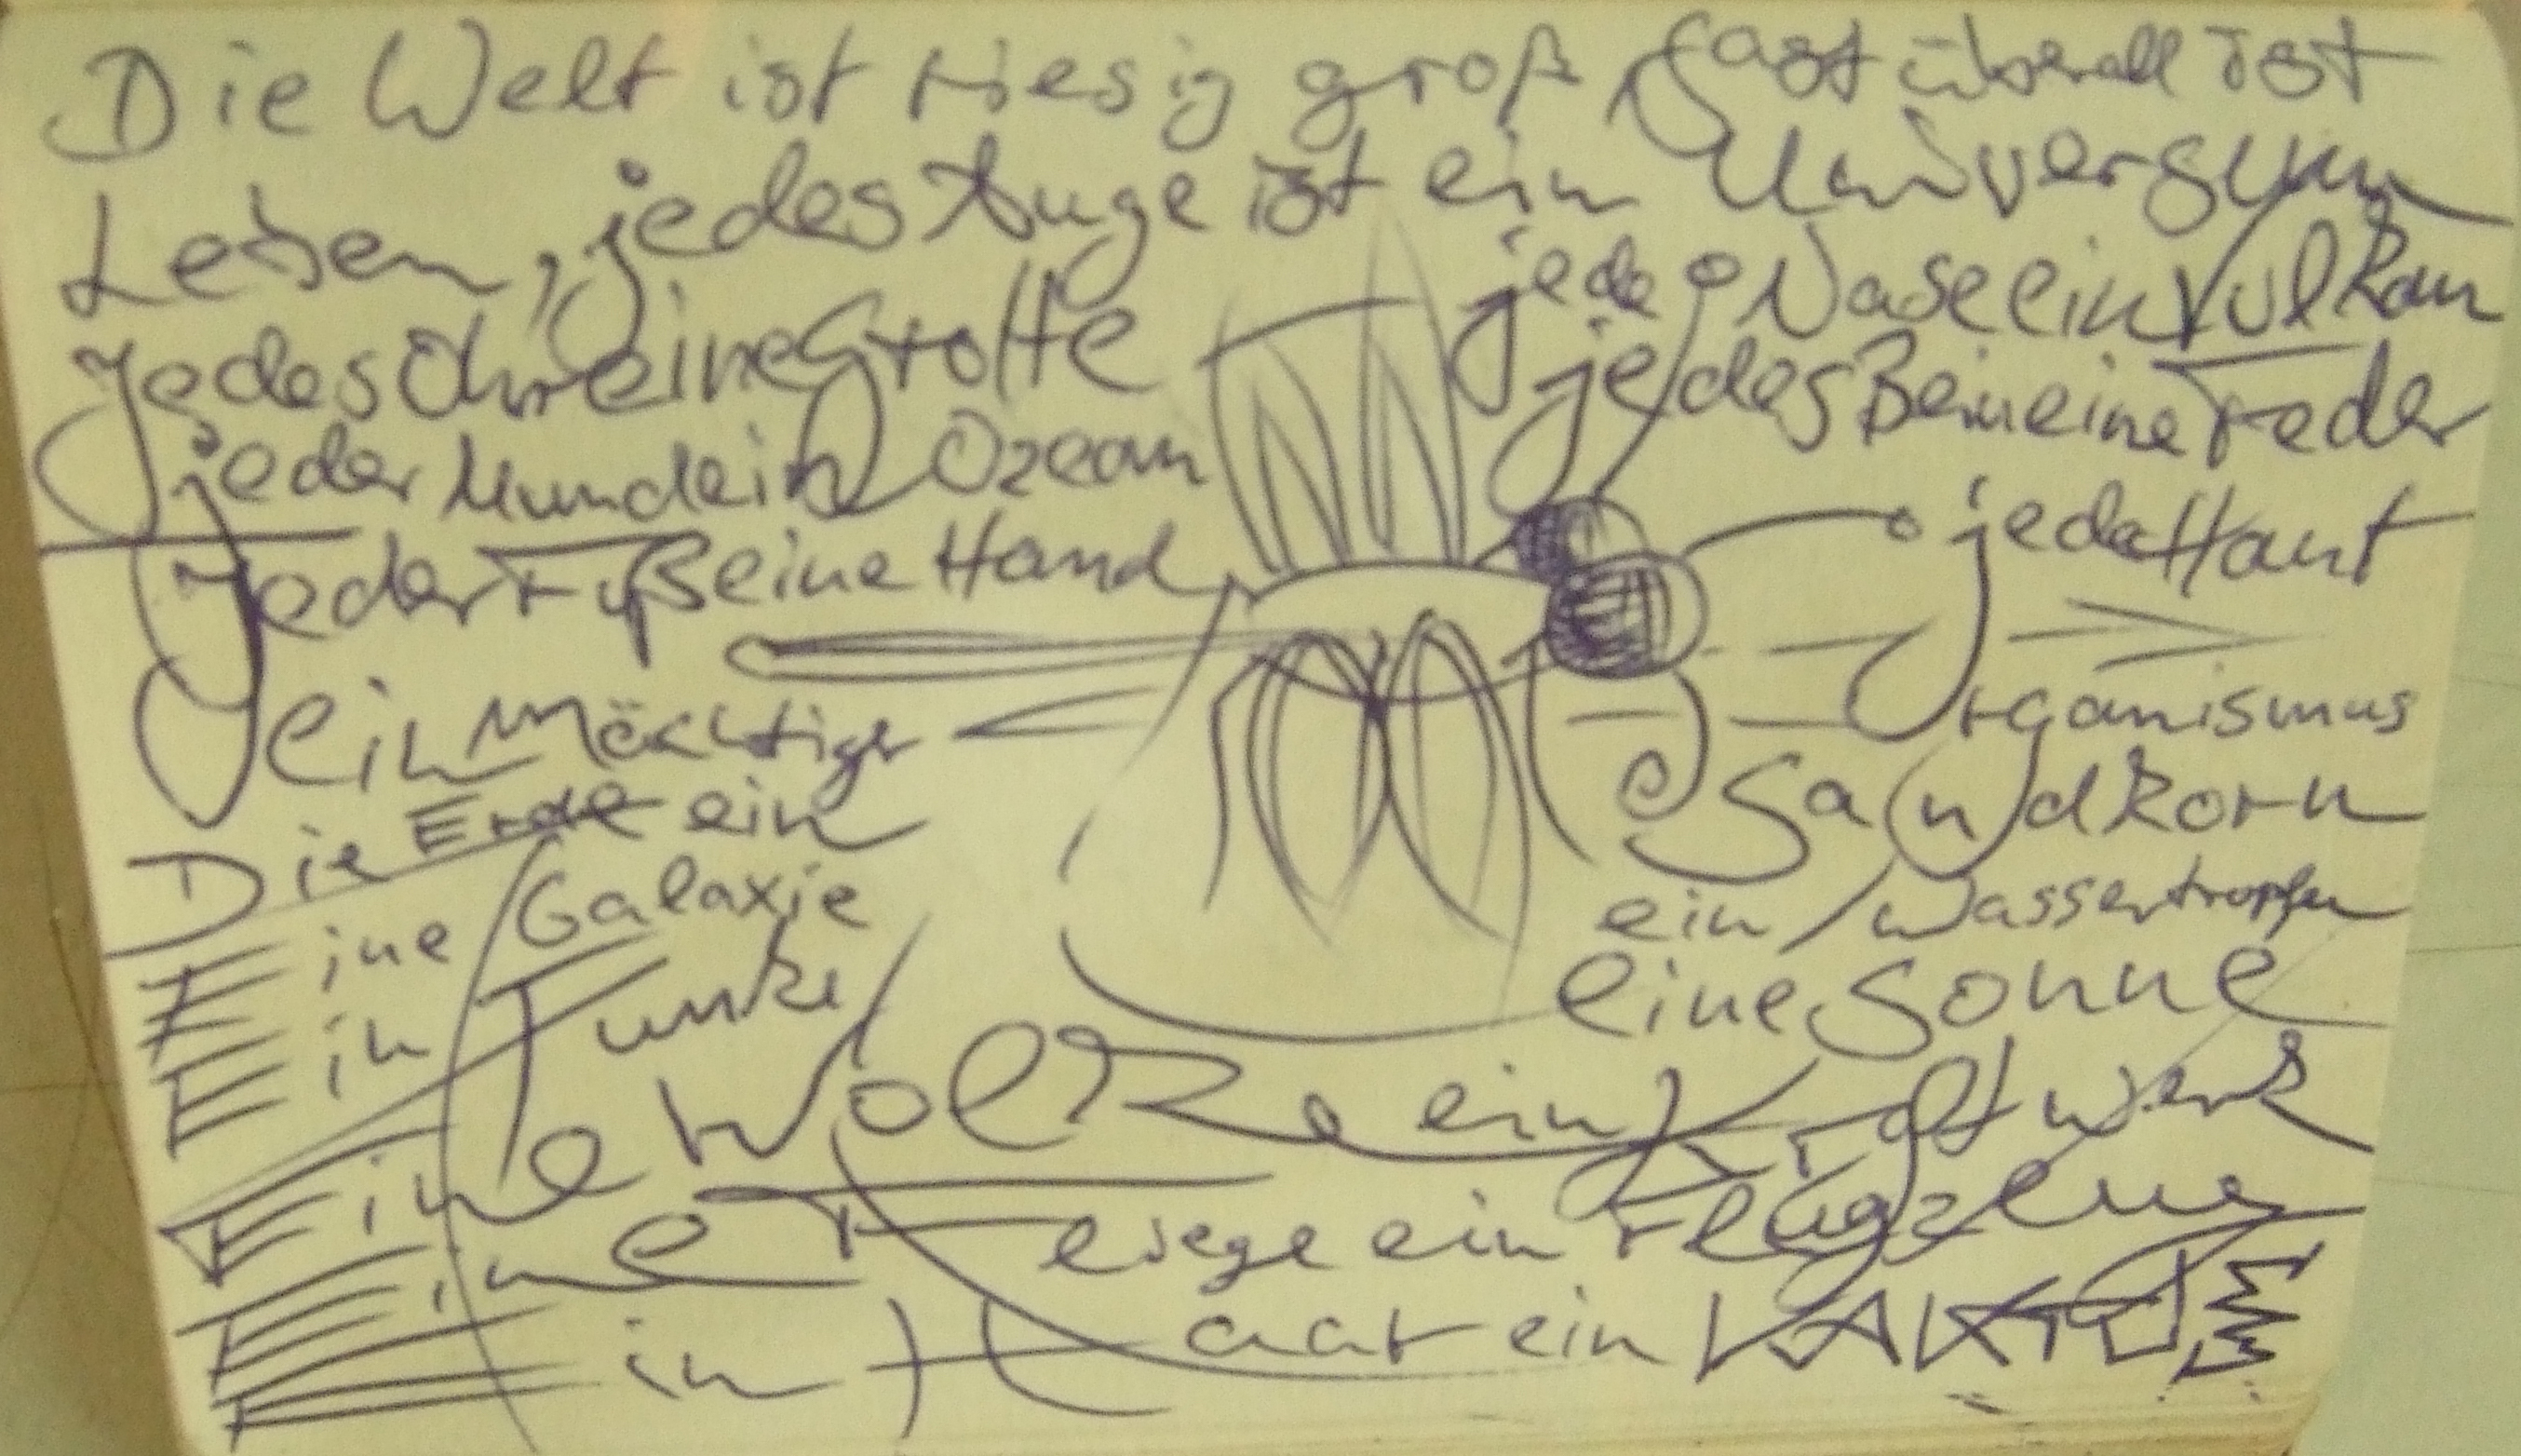 Die Welt ist riesig groß, fast überall ist
Leben, jedes Auge ist ein Universum
jede Nase ein Vulkan
jedes Ohr eine Grotte
jedes Bein eine Feder
jeder Mund ein Ozean
jede Haut
jeder Fuß eine Hand
ein mächtiger
Organismus
Die Erde ein
Sandkorn
Eine Galaxie
ein Wassertropfen
Ein Funke
eine Sonne
Eine Wolke ein Kraftwerk
Eine Fliege ein Flugzeug
Ein Haar ein KAKTUS